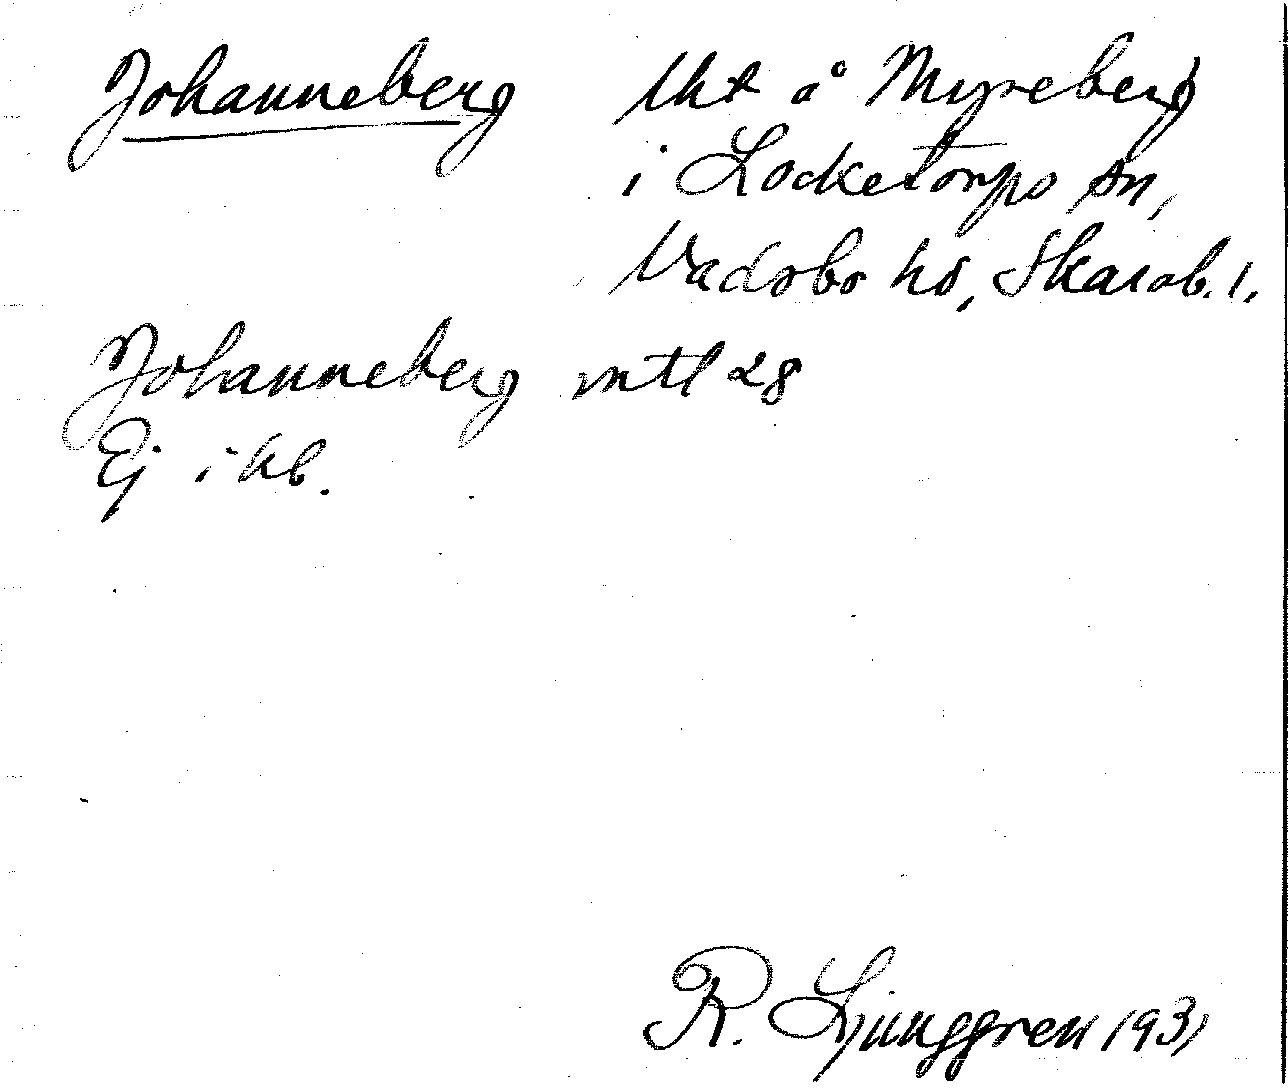 Johanneberg lht å Myreberg
i Locketorps sn,
Vadsbo hd, Skarab. l.
Johanneberg mtl 28
Ej i kb.
R. Ljunggren 1931